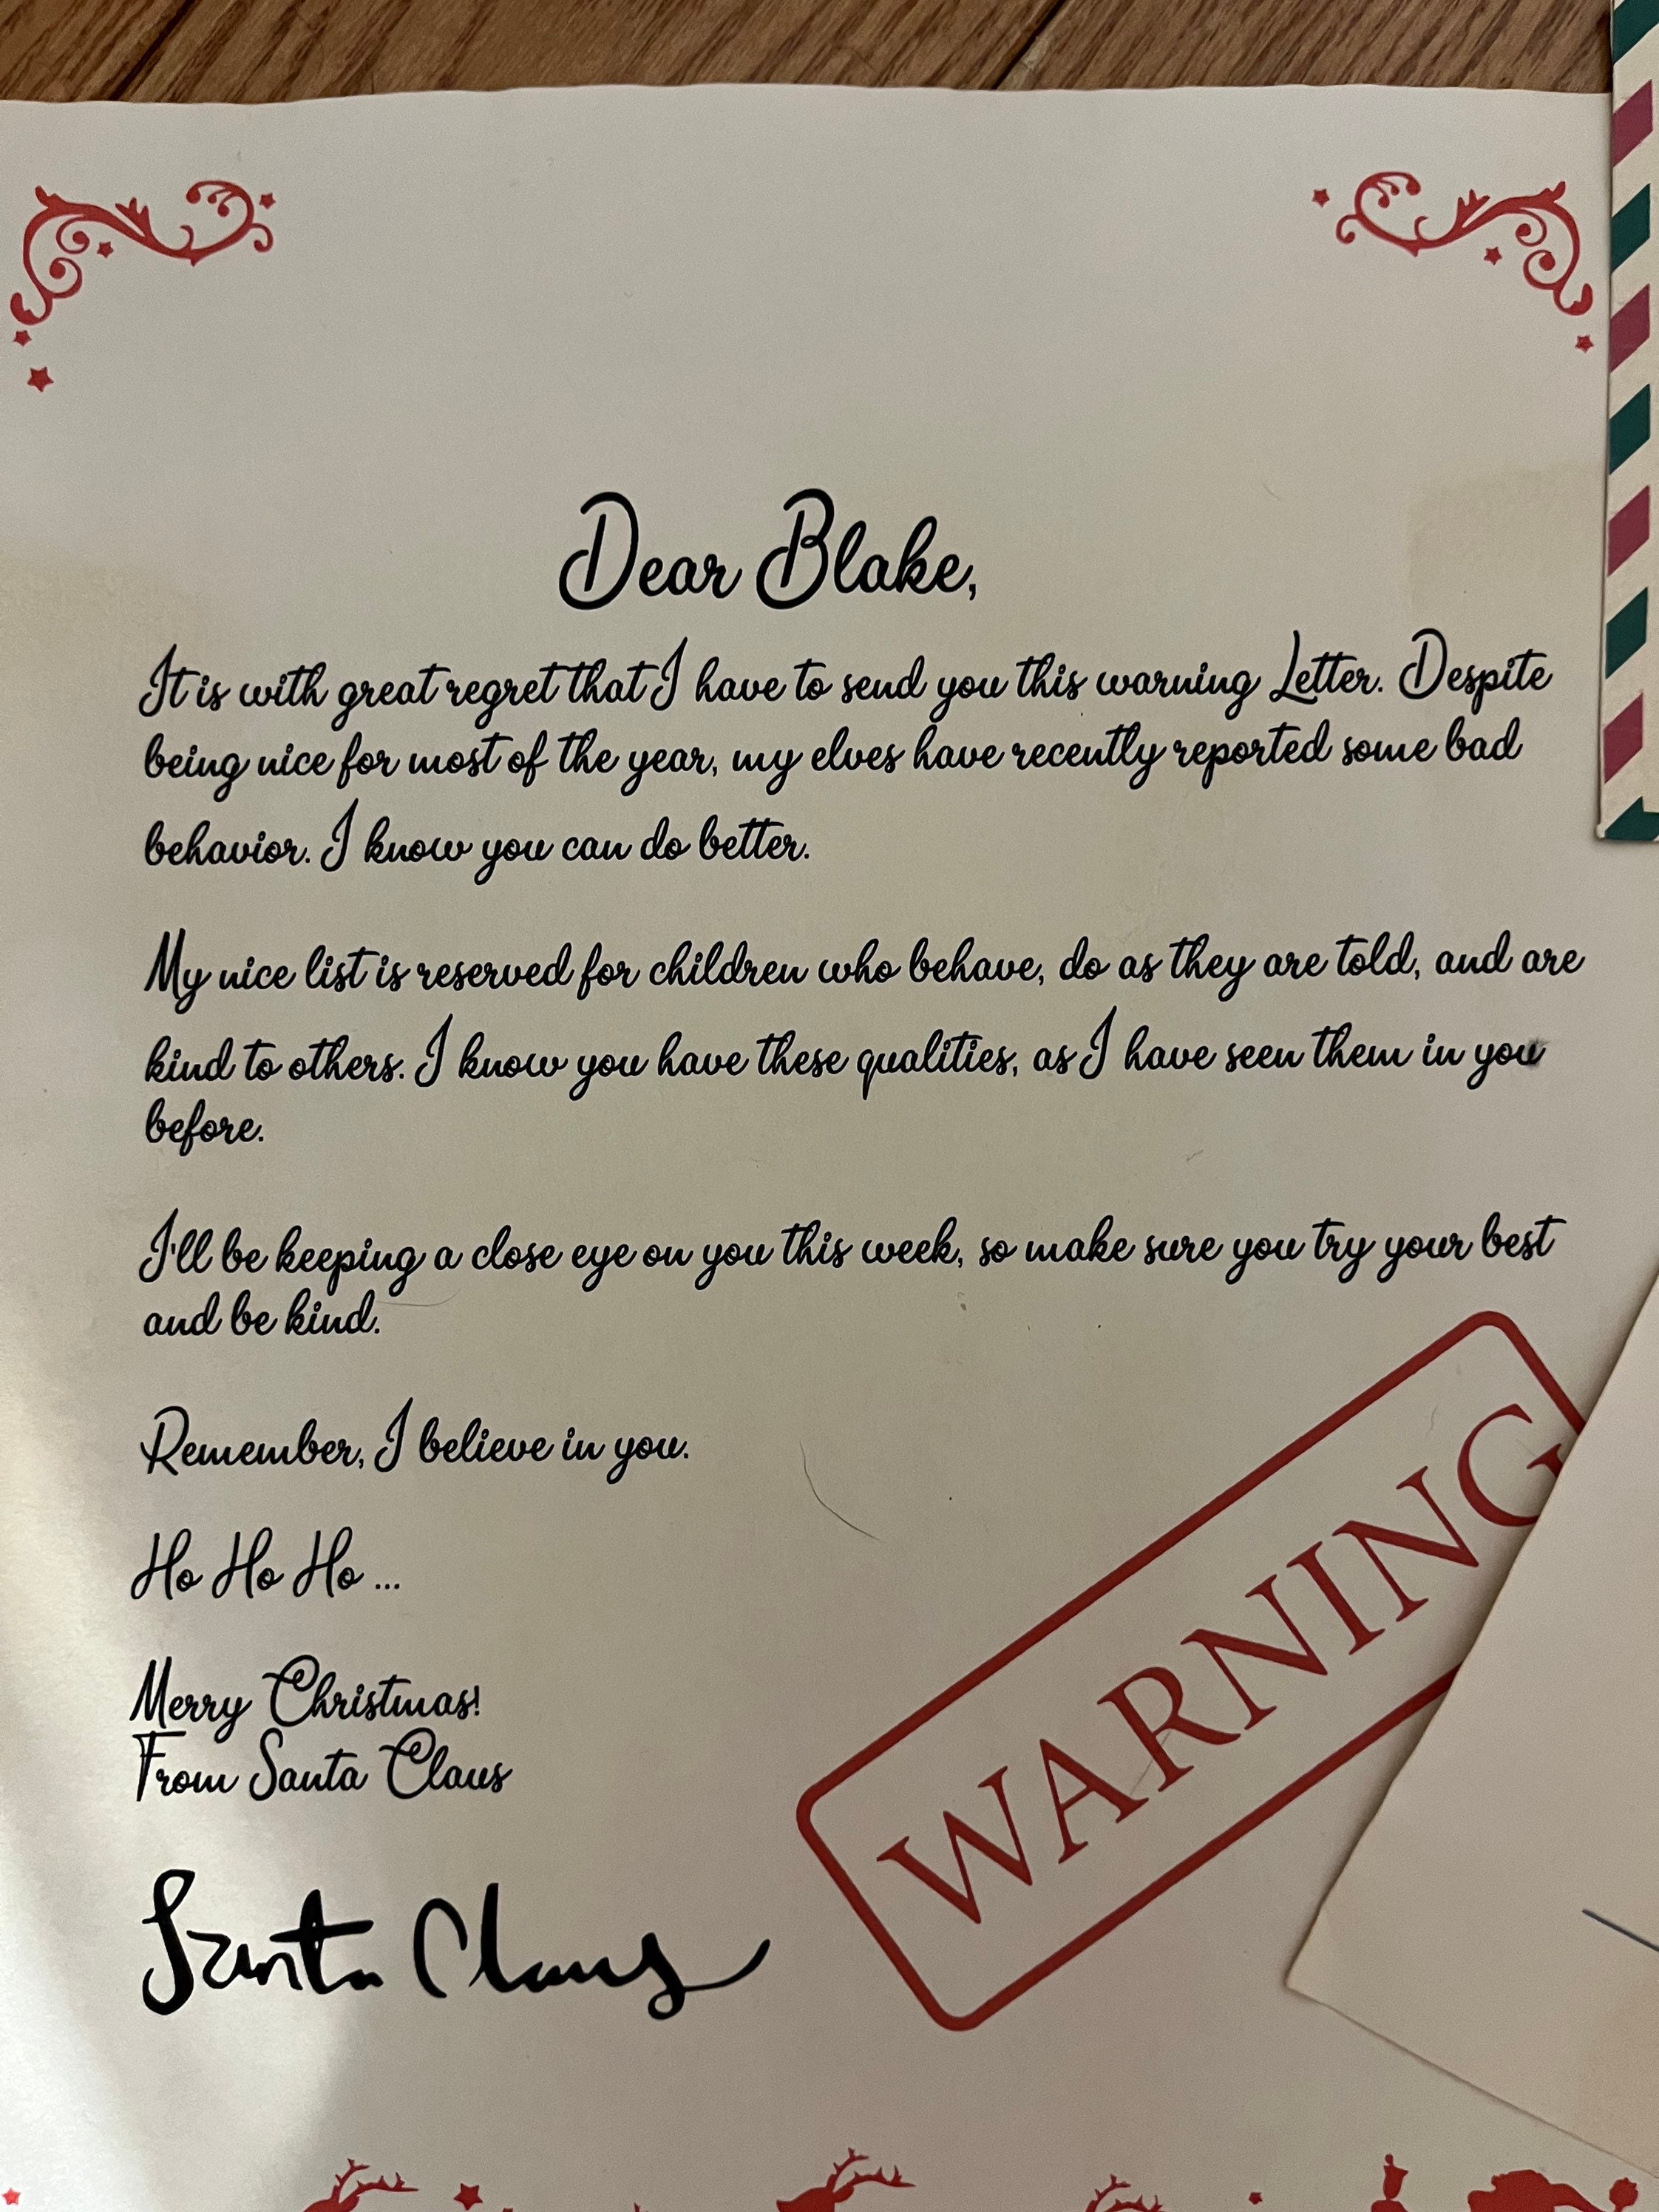 Dear Blake,
It is with great regret that I have to send you this warning Letter. Despite
being nice for most of the year, my elves have recently reported some bad
behavior. I know you can do better.
My nice list is reserved for children who behave, do as they are told, and are
kind to others. I know you have these qualities, as I have seen them in you
before.
I'll be keeping a close eye on you this week, so make sure you try your best
and be kind.
Remember, I believe in you.
Ho Ho Ho ...
Merry Christmas!
From Santa Claus
Santa Claus
WARNING